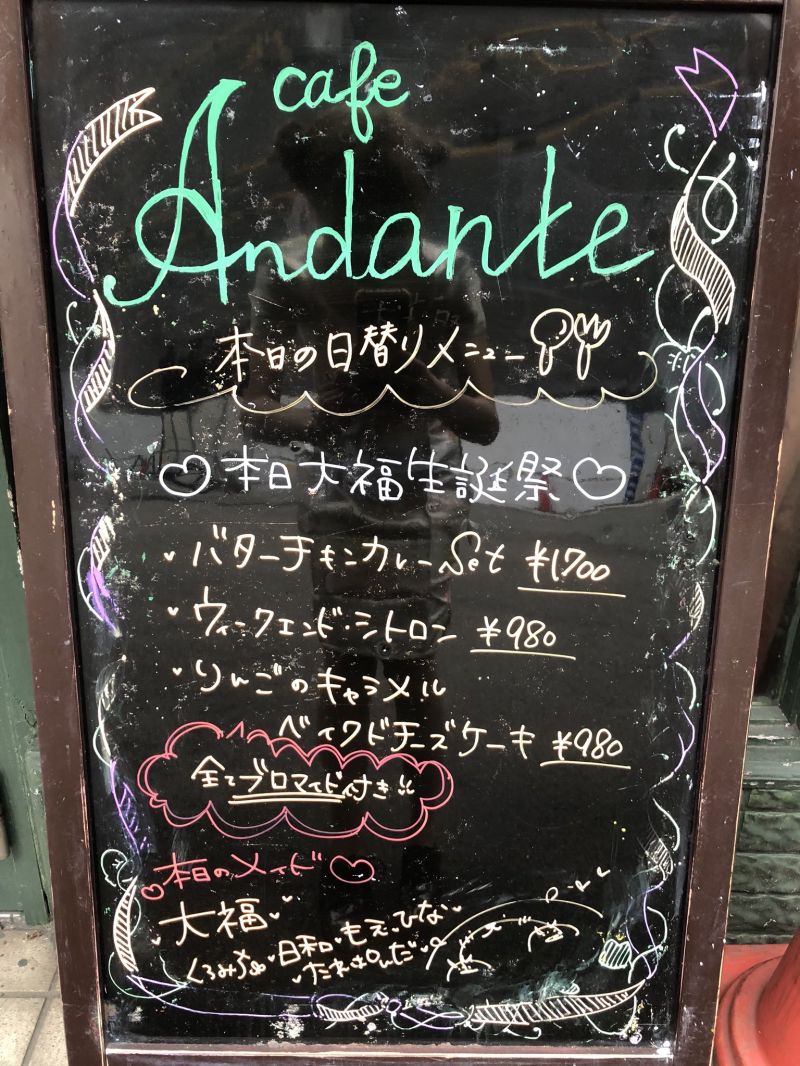 cafe
Andante
本日の日替りメニュー
本日大福生誕祭
バターチキンカレーSet ¥1700
ウィークエンド・シトロン ¥980
りんごのキャラメル
ベイクドチーズケーキ ¥980
全てブロマイド付き!!
本日のメイド
大福
くるみ 日和 もえ ひな